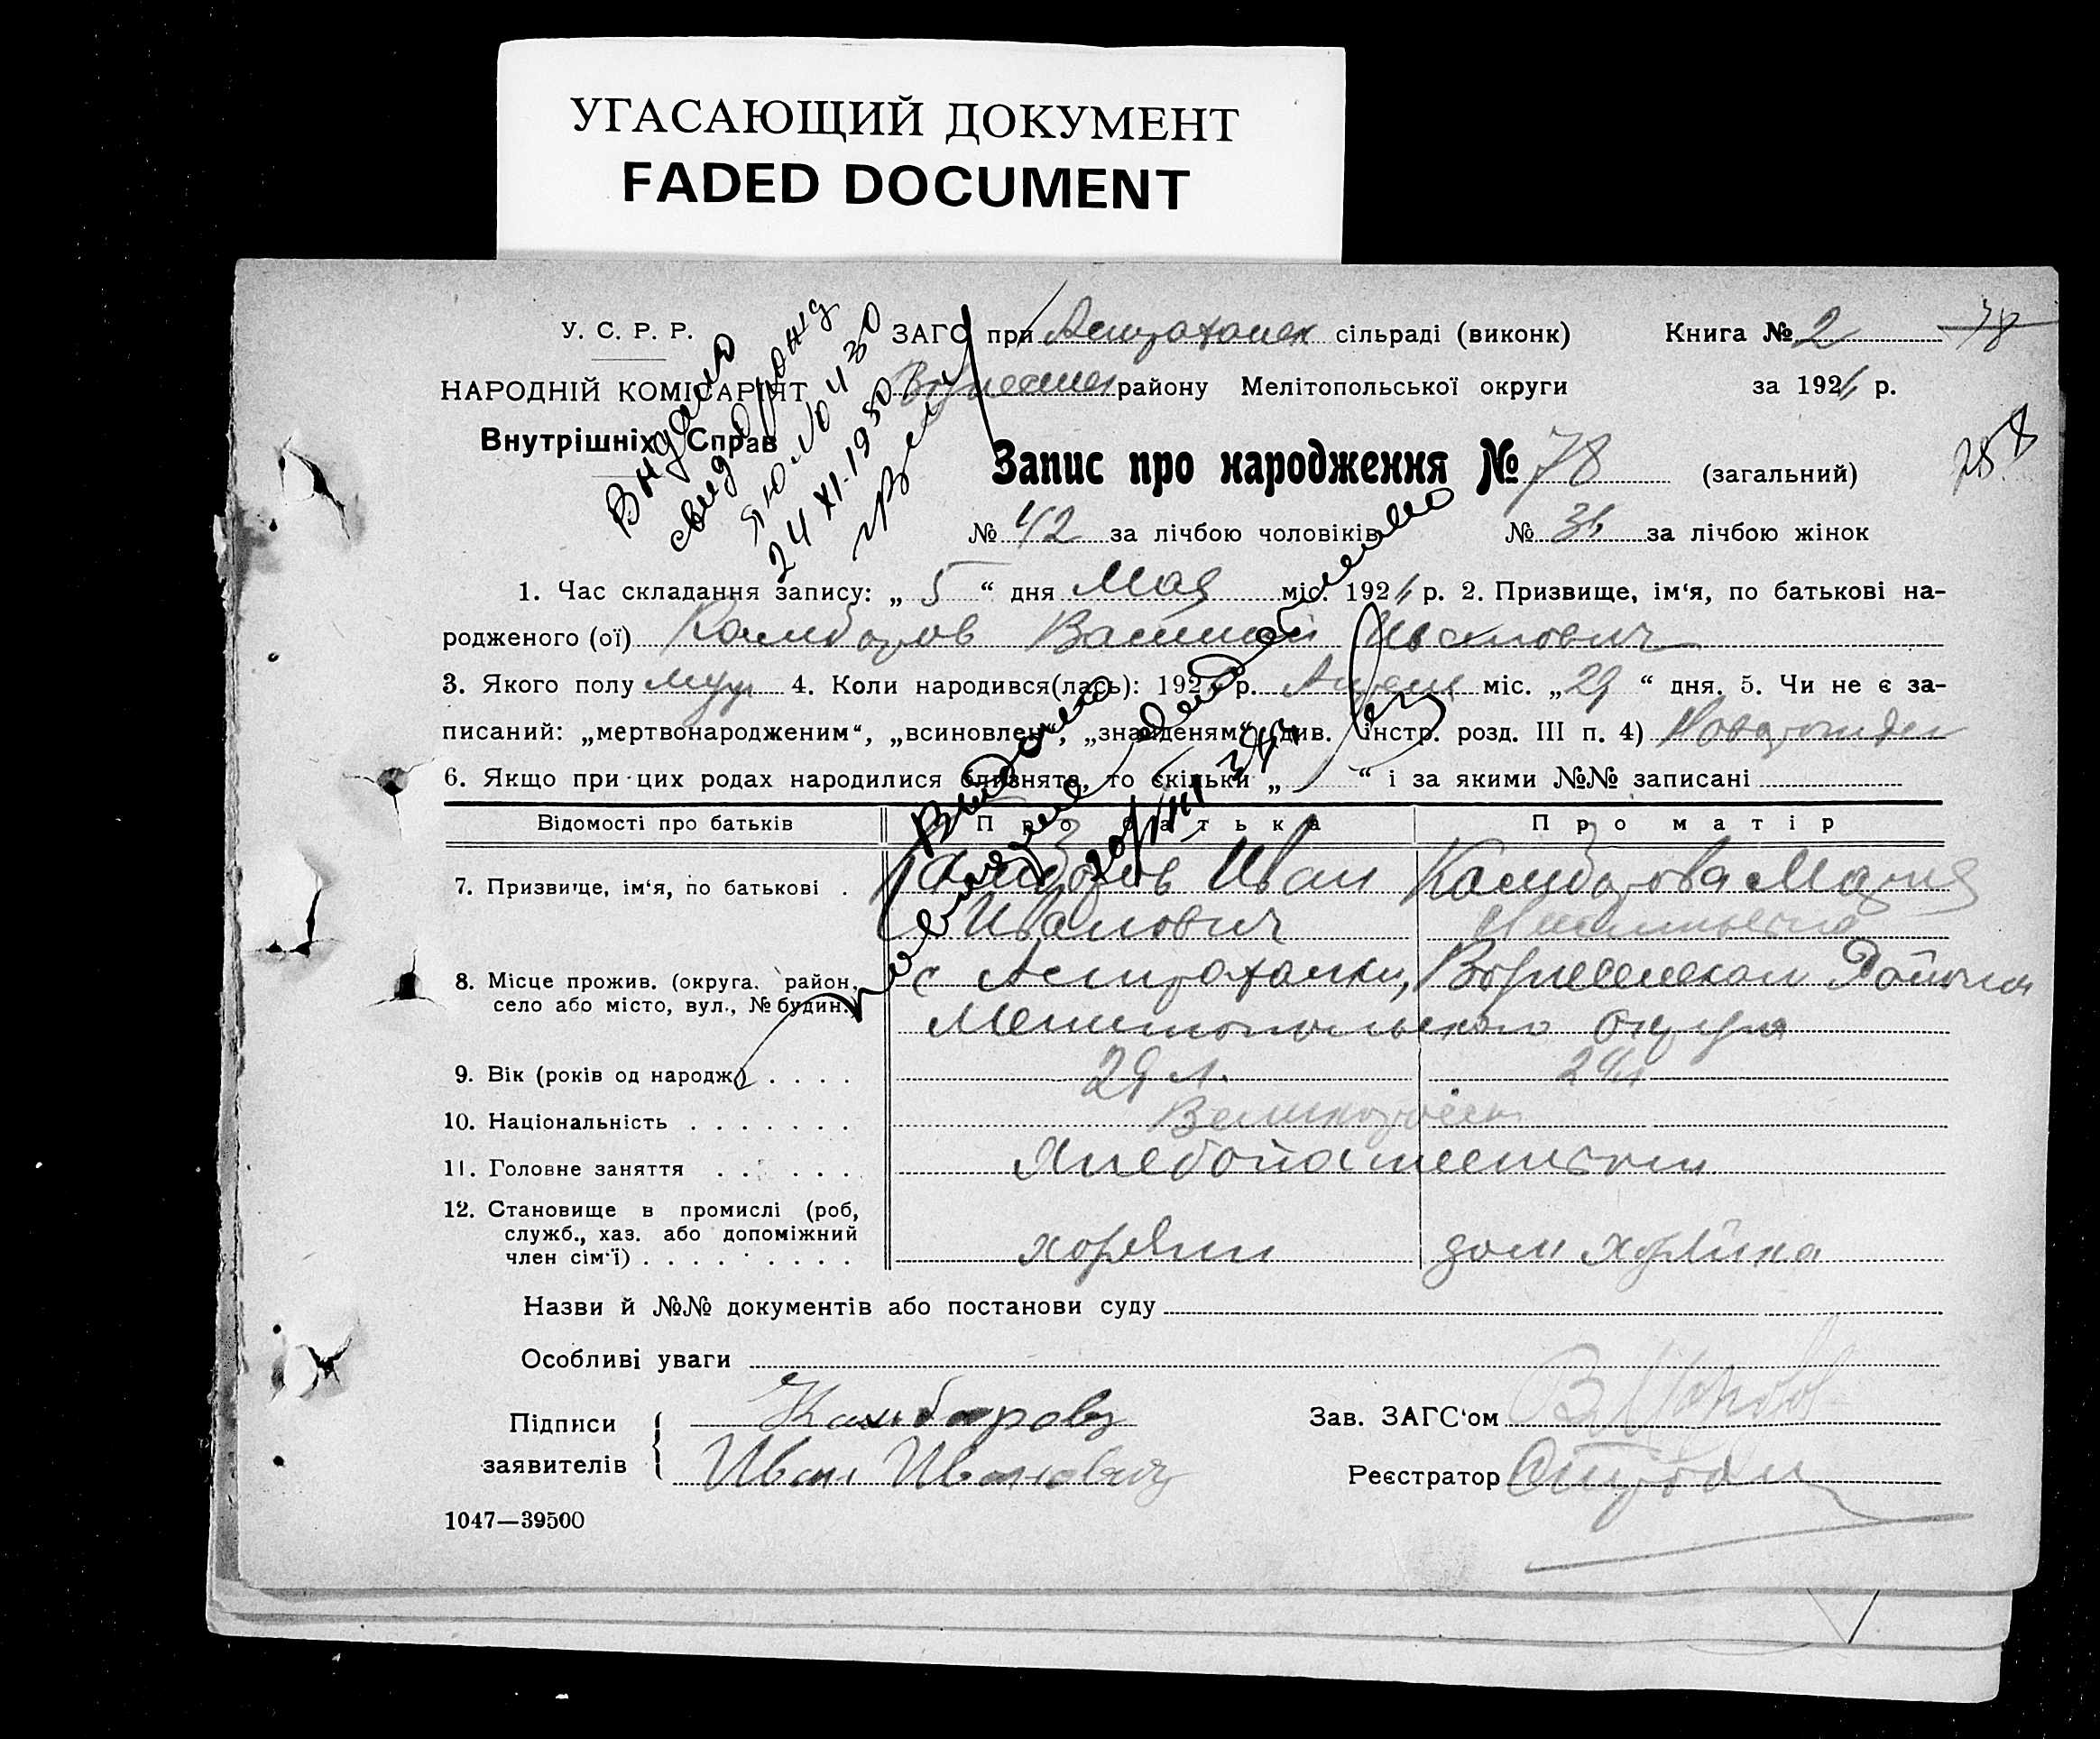 УГАСАЮЩИЙ ДОКУМЕНТ
FADED DOCUMENT
У. С. Р. Р.
НАРОДНІЙ КОМІСАРІЯТ
Внутрішніх Справ
ЗАГС при Астрахонск сільраді (виконк)
районy Мелітопольської округи
Книга № 2
за 192 р.
78
258
Видано
свид о рожд
ЯЮ № 011430
24 XI-1950
Запис про народження № 78 (загальний)
№ 42 за лічбою чоловіків № 36 за лічбою жінок
1. Час складання запису: „ 5 “ дня Мая міс. 192 р. 2. Призвище, ім‘я, по батькові на-
родженого (ої) Камбаров Василий Иванович
3. Якого полу муж 4. Коли народився(лась): 192 р. Апреля міс. „ 29 “ дня. 5. Чи не є за-
писаний: „мертвонародженим“, „всиновлен“, „знайденям“ (див. інстр. розд. III п. 4) Новорожден
6. Якщо при цих родах народилися близнята, то скільки „ “ і за якими №№ записані
Відомості про батьків Про батька Про матір
7. Призвище, ім‘я, по батькові . Камбаров Иван Камбарова Мария
Иванович
8. Місце прожив. (округа. район, с Астраханки, Вознесенского Района
село або місто, вул., № будин.) Мелитопольского Округа
9. Вік (років од народж.) . . . . 29 л. 24
10. Національність . . . . . . . Великоросс
11. Головне заняття . . . . . . Хлебопашеством
12. Становище в промислі (роб,
служб., хаз. або допоміжний
член сім‘ї) . . . . . . . . хозяин дом хозяйка
Назви й №№ документів або постанови суду
Особливі уваги
Підписи Камбаровъ
заявителів Иван Иванович
Зав. ЗАГС‘ом
Реєстратор
1047—39500